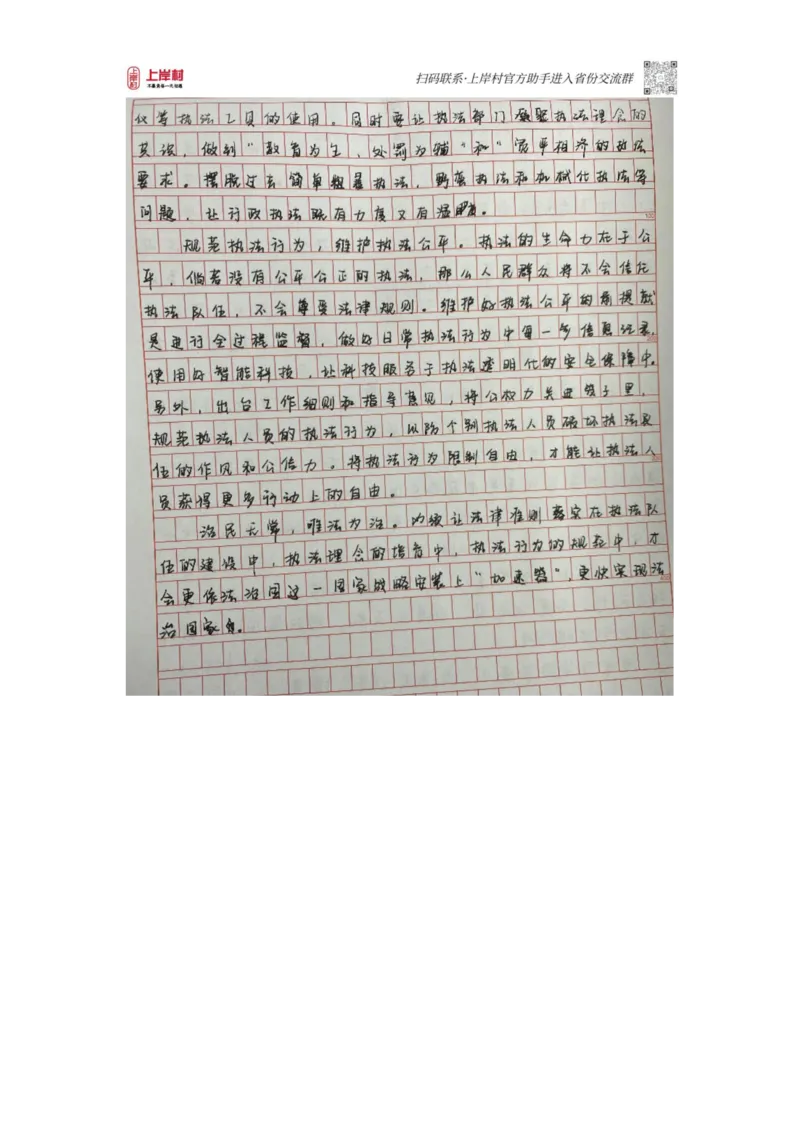 上岸村
上岸村
不最具体一代知道
扫码联系·上岸村官方助手进入省份交流群
仪等执法工具的使用。同时要让执法部门凝聚执法理念的
共识，做到"教育为主、处罚为辅"和"宽严相济的政法
要求。摆脱过去简单粗暴执法，野蛮执法和机械化执法等
问题，让行政执法既有力度又有温度。
规范执法行为，维护执法公平。执法的生命力在于公
平，倘若没有公平公正的执法，那么人民群众将不会信任
执法队伍，不会尊重法律规则。维护好执法公平的前提就
是进行全过程监督，做好日常执法行为中每一步信息记录，
使用好智能科技，让科技服务于执法透明化的安全保障中。
另外，出台工作细则和指导意见，将公权力关进笼子里，
规范执法人员的执法行为，以防个别执法人员破坏执法队
伍的作风和公信力。将执法行为限制自由，才能让执法人
员获得更多行动上的自由。
治民无常，唯法为治。必须让法律准则落实在执法队
伍的建设中，执法理念的培育中，执法行为的规范中，才
会更依法治国这一国家战略安装上"加速器"，更快实现法
治国家。